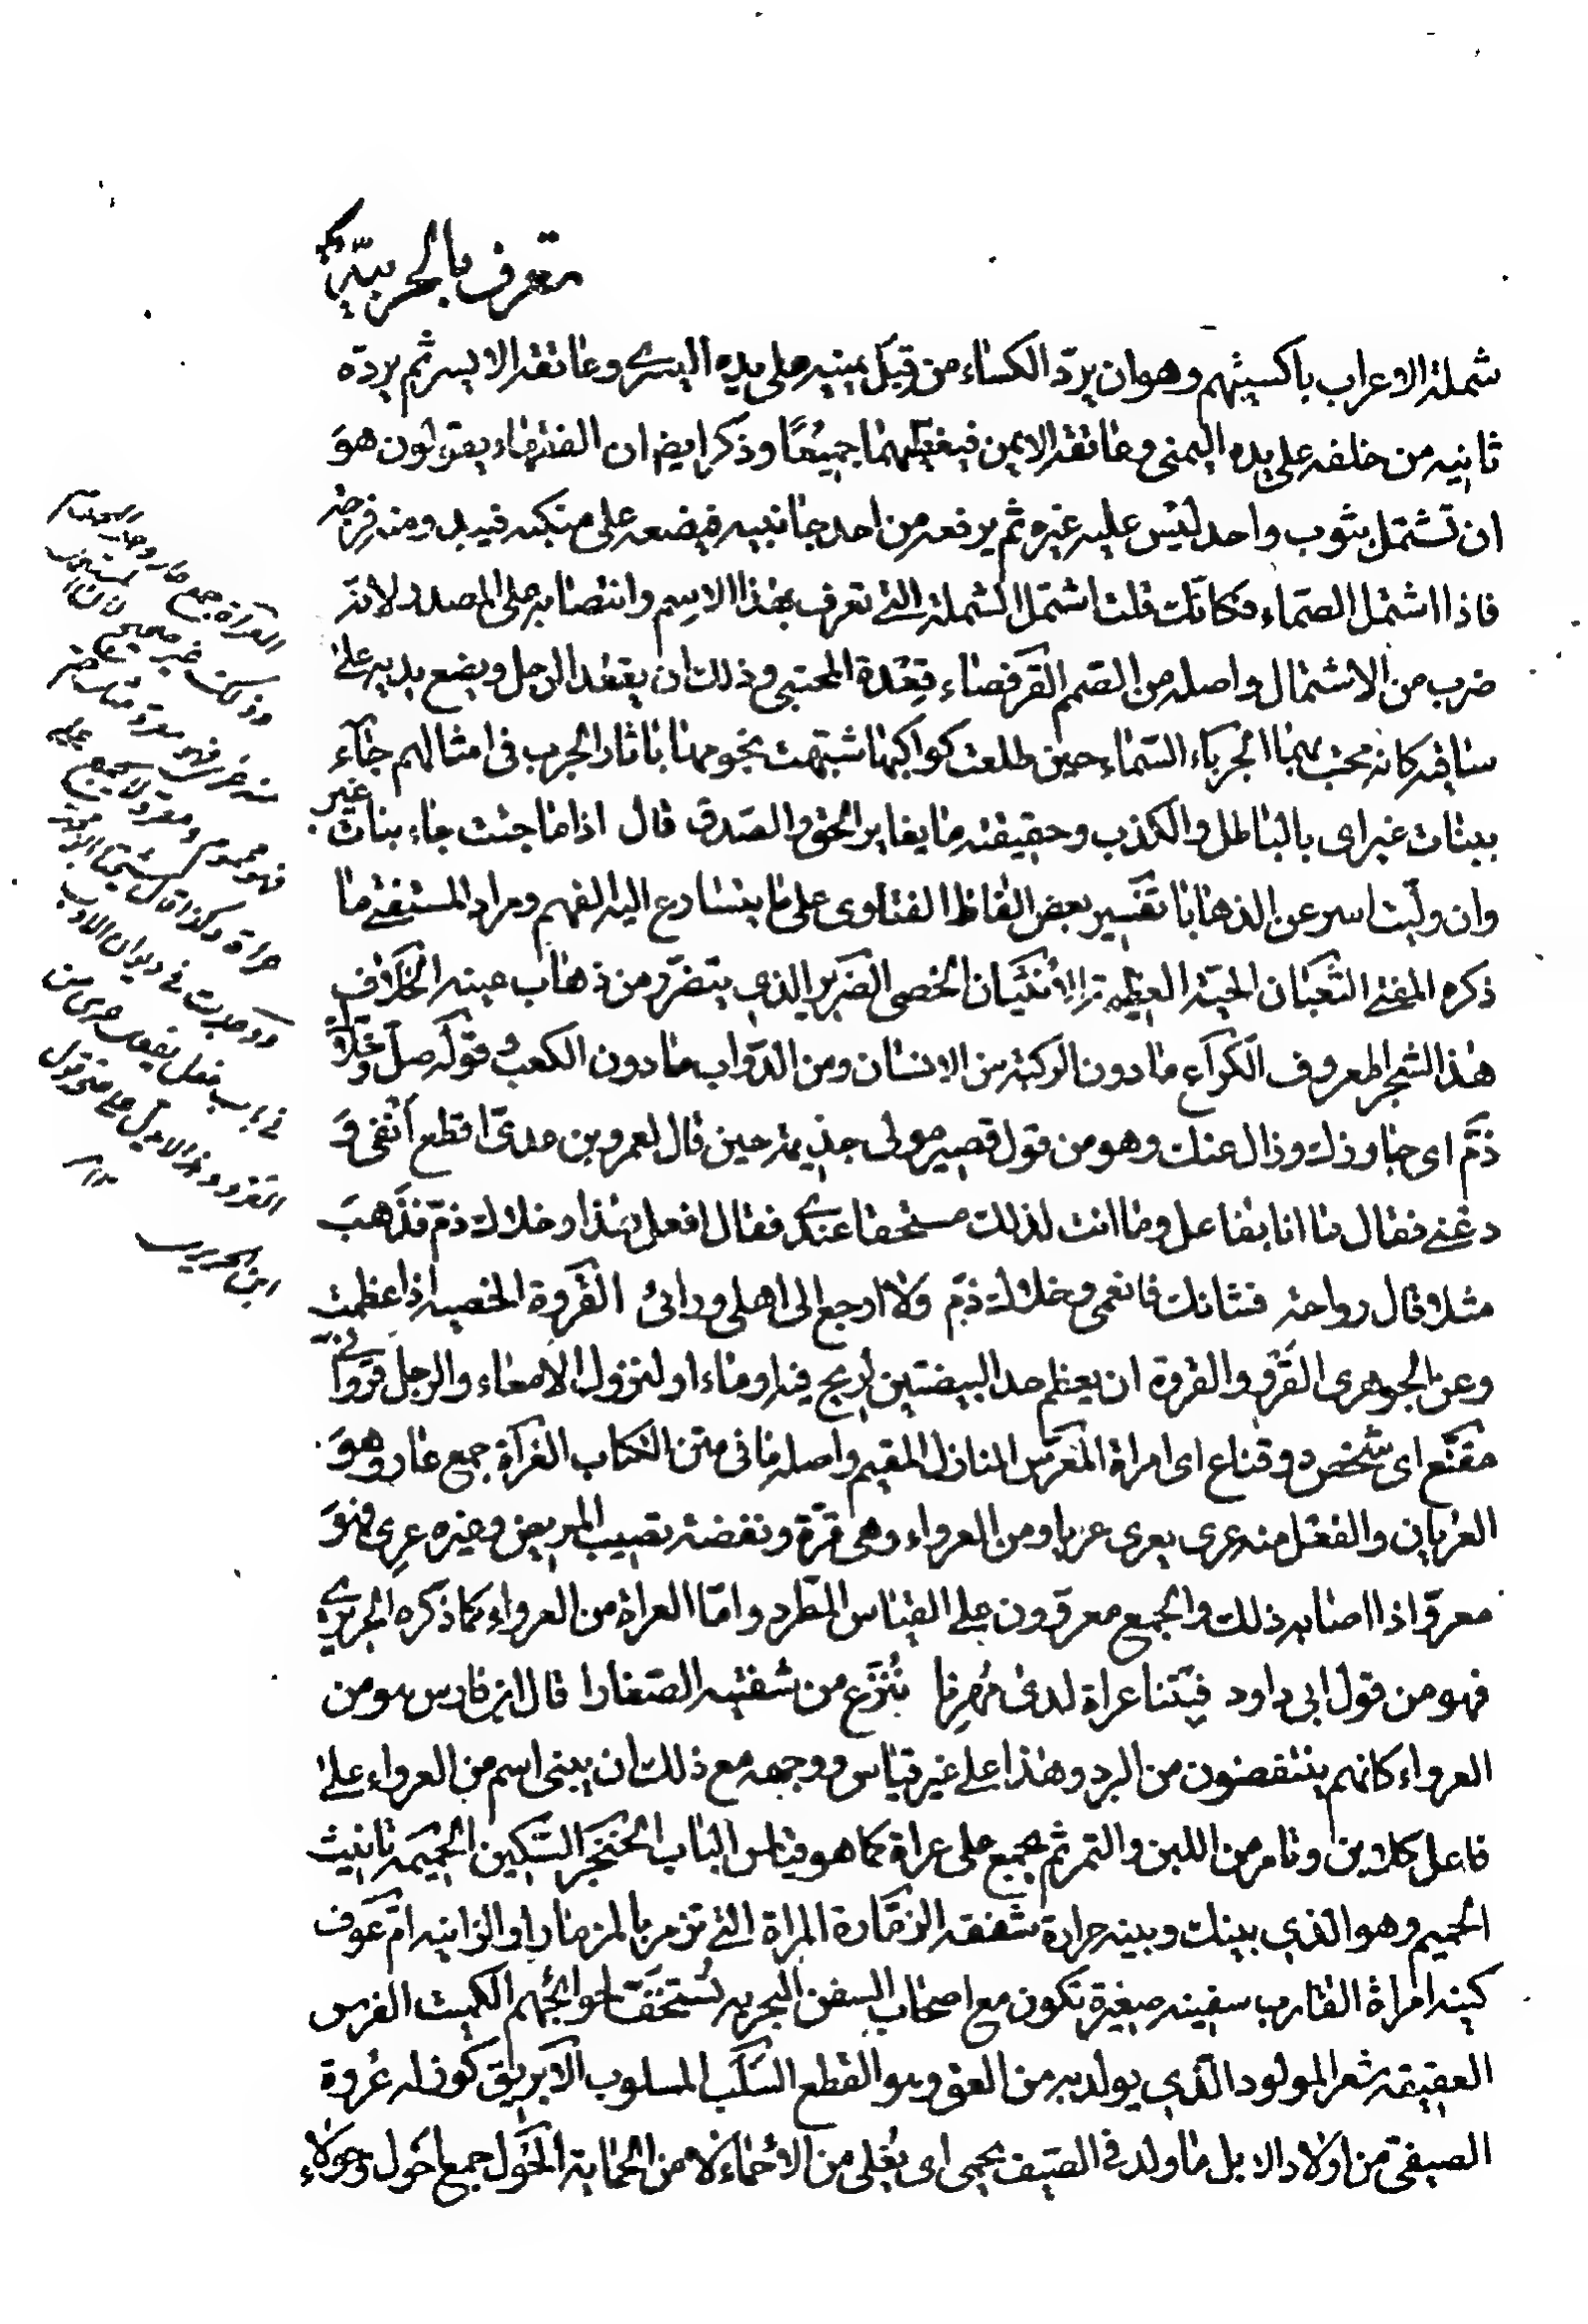 تعرف بالحربية
شملة الاعراب باكسيتهم وهو ان يردّ الكساء من قِبَل يمينه على يده اليسرى وعاتقه الايسر ثم يردّه
ثانيه من خلفه على يده اليمنى وعاتقه الايمن فيغطيهما جميعًا وذكر ايضا ان الفقهاء يقولون هوَ
ان تشتمل بثوب واحد ليس عليه غيره ثم يرفعه من احد جانبيه فيضعه على منكبه فيبد ومنه فرجه
فاذا اشتمل الصماء فكانك قلت اشتمل الشملة التى تعرف بهذا الاسم وانتصابه على المصدر لانه
ضرب من الاشتمال واصله من الصمم القرفصاء قِعْدة المحتبى وذلك ان يقعد الرجل ويضع يديه على
ساقيه كانه محتب بهما الجرباء السماء حين طلعت كواكبها شبهت نجومها باثار الجرب فى امثالهم جاء
ببنات غير اى بالباطل والكذب وحقيقته ما يغاير الحق والصدق قال اذا ما جئت جاء بنات غير
وان وليت اسرعن الذهابا تفسير بعض الفاظ الفتاوى على ما يتسارع اليه الفهم ومراد المستفتى ما
ذكره المفتى الثعبان الحية العظيمة الاُنثيان الخصى الضرير الذى يتضرر من ذهاب عينه الخلاف
هذا الشجر المعروف الكراع ما دون الركبة من الانسان ومن الدواب ما دون الكعب قوله صل وخلاك
ذمّ اى جاوزك وزال عنك وهو من قول قصير مولى جذيمة حين قال لعمرو بن عدى اقطع انفى وَ
دعنى فقال ما انا بفاعل وما انت لذلك مستحقا عندى فقال افعل هذا وخلاك ذمّ فذهبَ
مثلا وقال رواحة فشانك فانعمى وخلاك ذمّ ولا ارجع الى اهلى ورائى القروة الخصية اذا عظمت
وعن الجوهرى القَرْو والقروة ان يعظم جلد البيضتين لريح فيه او ماء او لنزول الامعاء والرجل قروانى
مقنّع اى شخص ذو قناع اى امراة المعرّس المنازل المقيم واصله ما فى متن الكتاب العُراة جمع عار وهوَ
العريان والفعل منه عرى يعرى عريا ومن العرواء وهى قرّة ونفضة تصيب المريض وغيره عرِى فهوَ
معروّ اذا اصابه ذلك والجمع معروّون على القياس المطّرد وامّا العراة من العرواء كما ذكره الحريرى
فهو من قول ابى داود فبتنا عراة لدى مُهرنا نُنزّع من شفتيه الصفارا قال ابن فارس هو من
العرواء كانهم ينتفضون من البرد وهذا على غير قياس ووجهه مع ذلك ان يبنى اسم من العرواء على
فاعل كلابن وتامر من اللبن والتمر ثم يجمع على عراة كما هو قياس الباب الخنجر السكين الحميمة تانيث
الحميم وهو الذى بينك وبينه حرارة شفقة الزمّارة المراة التى تزمر بالمزمار او الزانية امّ عَوف
كنية امراة القارب سفينة صغيرة تكون مع اصحاب السفن البحرية تُستخفّ لحوائجهم الكميت الفرس
العقيقة شعر المولود الذى يولد به من العق وهو القطع السَلَب المسلوب الابريق كوز له عُروة
الصيفى من اولاد الابل ما ولد فى الصيف يحمى اى يُغلى من الاحماء لا من الحماية الحُول جمع احول وحولاء
العراة جمع عار
ابن الحريرى